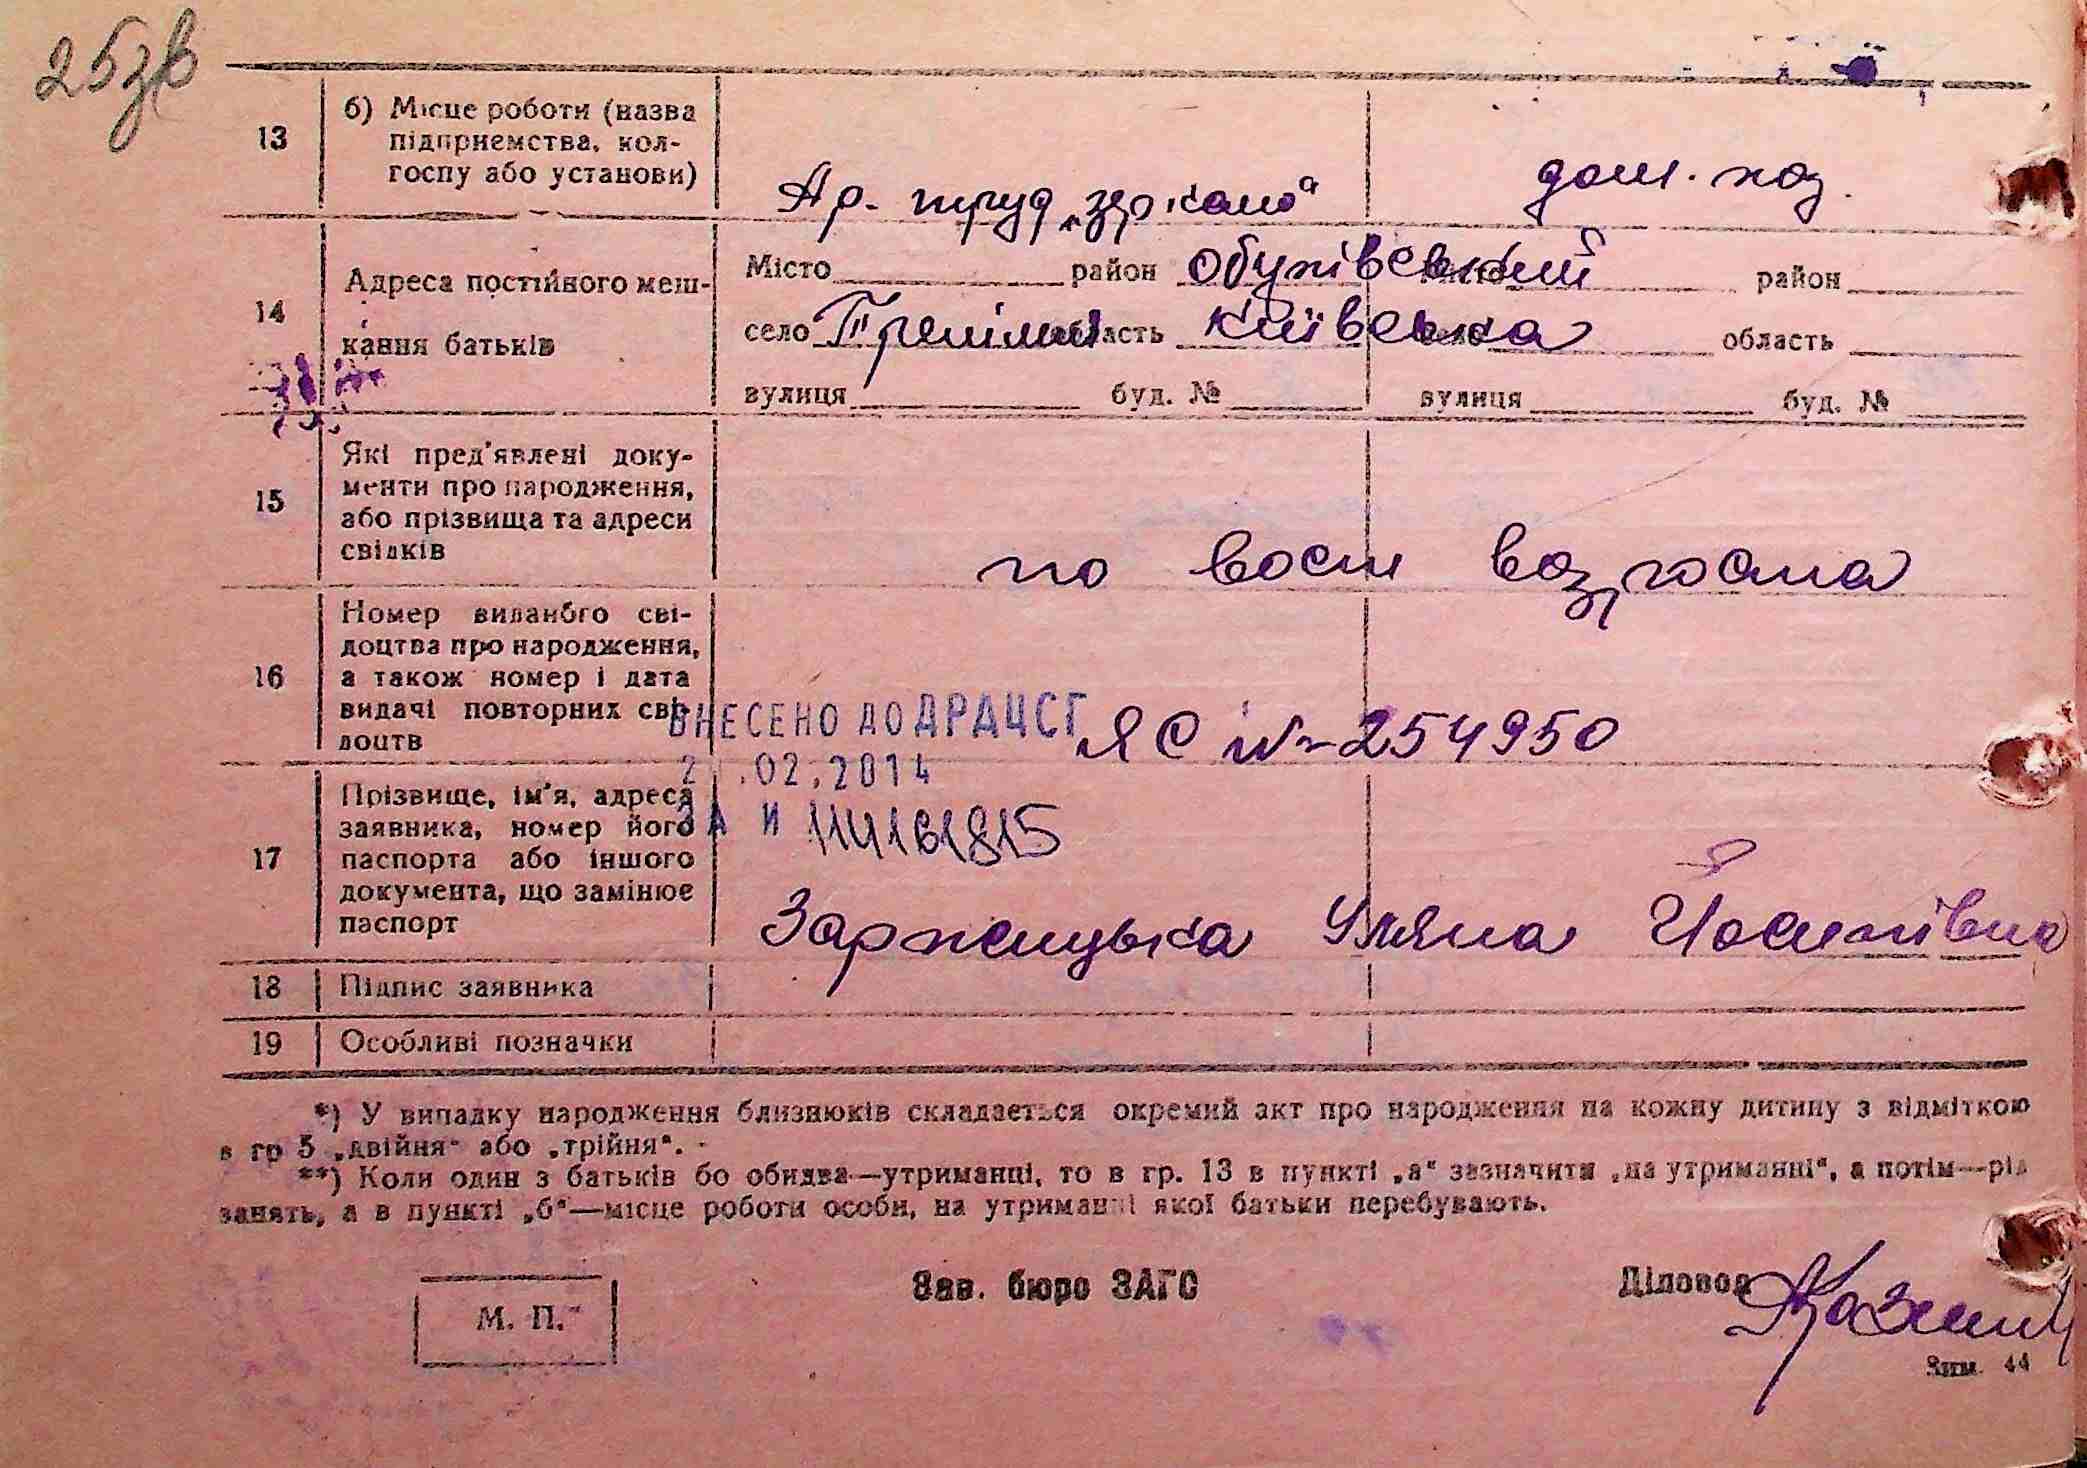 25зв
13
б) Місце роботи (назва
підприємства, кол-
госпу або установи)
Ар. труд „зеркало“
дом. хоз.
14
Адреса постійного меш-
кання батьків
Місто район Обухівський район
село Трипілля область Київська область
вулиця буд. №
вулиця буд. №
15
Які пред'явлені доку-
менти про народження,
або прізвища та адреси
свідків
по вост возроста
16
Номер виданого сві-
доцтва про народження,
а також номер і дата
видачі повторних сві-
доцтв
ВНЕСЕНО ДО ДРАЦСГ
ЯС № 254950
.02.2014
ЗА И 114161815
17
Прізвище, ім'я, адреса
заявника, номер його
паспорта або іншого
документа, що замінює
паспорт
Заржицька Уляна Йосипівна
18
Підпис заявника
19
Особливі позначки
*) У випадку народження близнюків складається окремий акт про народження на кожну дитину з відміткою
в гр 5 „двійня“ або „трійня“.
**) Коли один з батьків бо обидва—утриманці, то в гр. 13 в пункті „а“ зазначити „на утриманні“, а потім—рід
занять, а в пункті „б“—місце роботи особи, на утриманні якої батьки перебувають.
М. П.
Зав. бюро ЗАГС
Діловод
Зам. 44